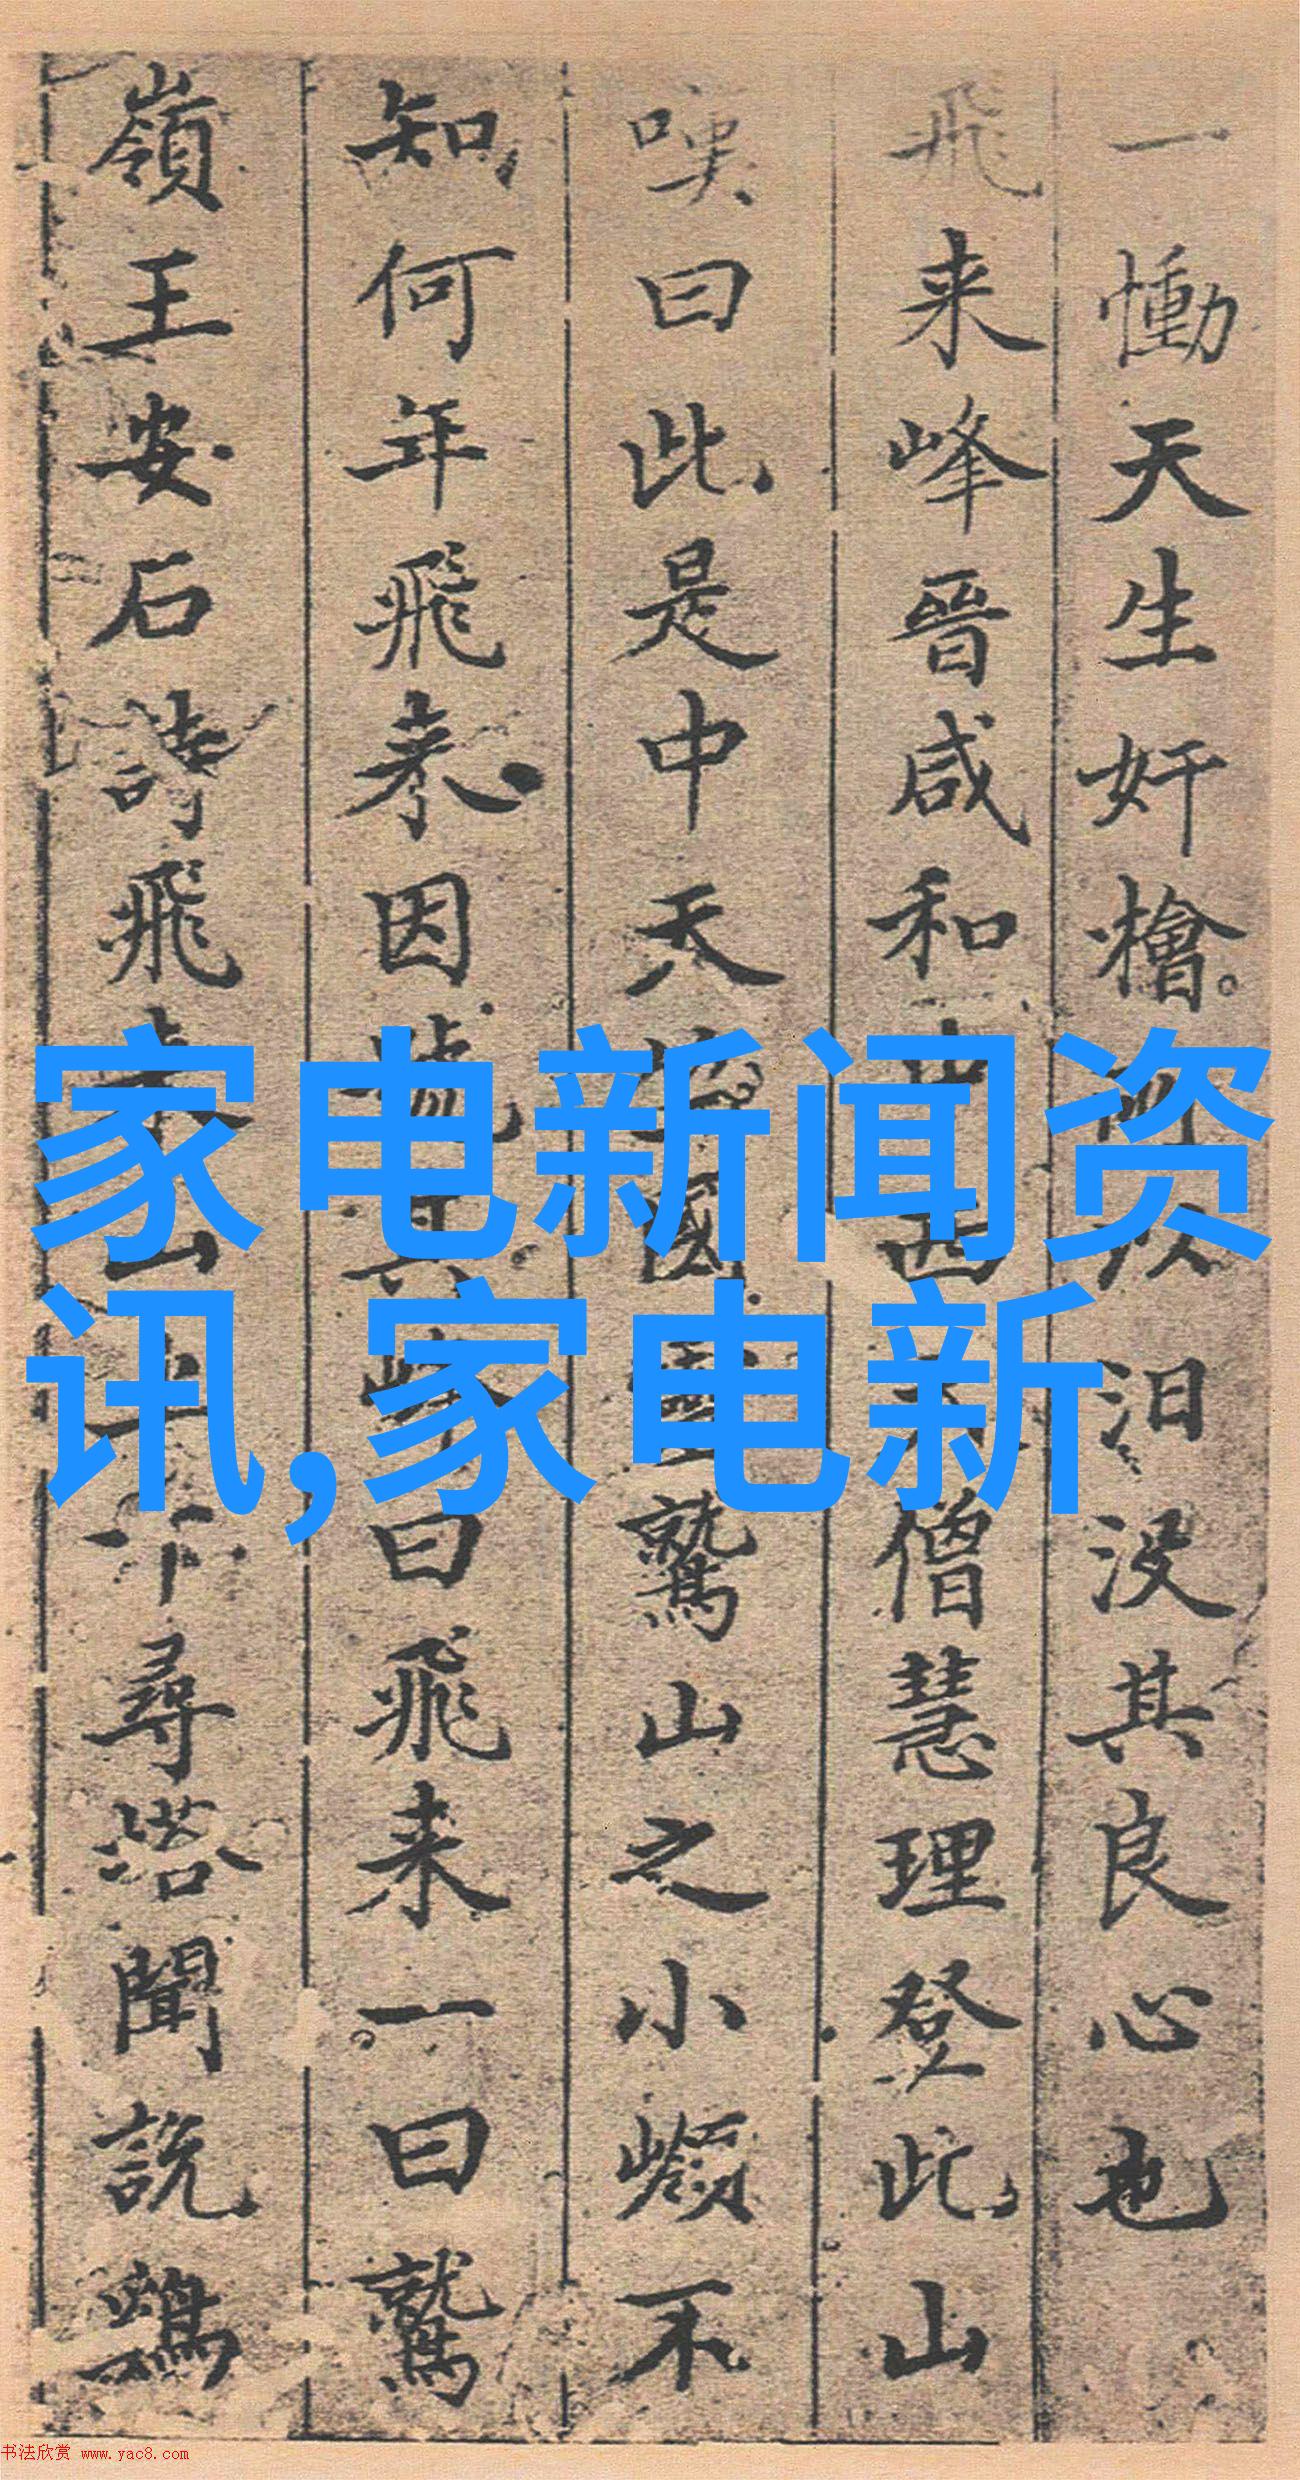 一慟天生奸檜。以汨没其良心也
飛来峰晉咸和中西天僧慧理登此山
嘆曰此是中天竺國靈鷲山之小嶺不
知何年飛来因號其峰曰飛来一曰鷲
嶺王安石詩飛来山上千尋塔聞説鷄
家电新闻资
讯,家电新
书法欣赏 www.yac8.com